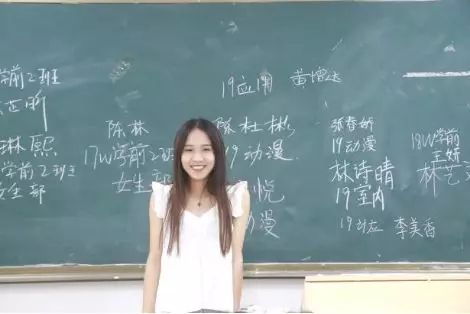 学前2班
琳熙
学前2班
女生部
陈林
17W学前2班
女生部
19应用 黄增达
陈杜彬
19动漫
悦
动漫
张春妍
19动漫
林诗晴
19室内
19动应 李美香
18W学前
王妍
林艺